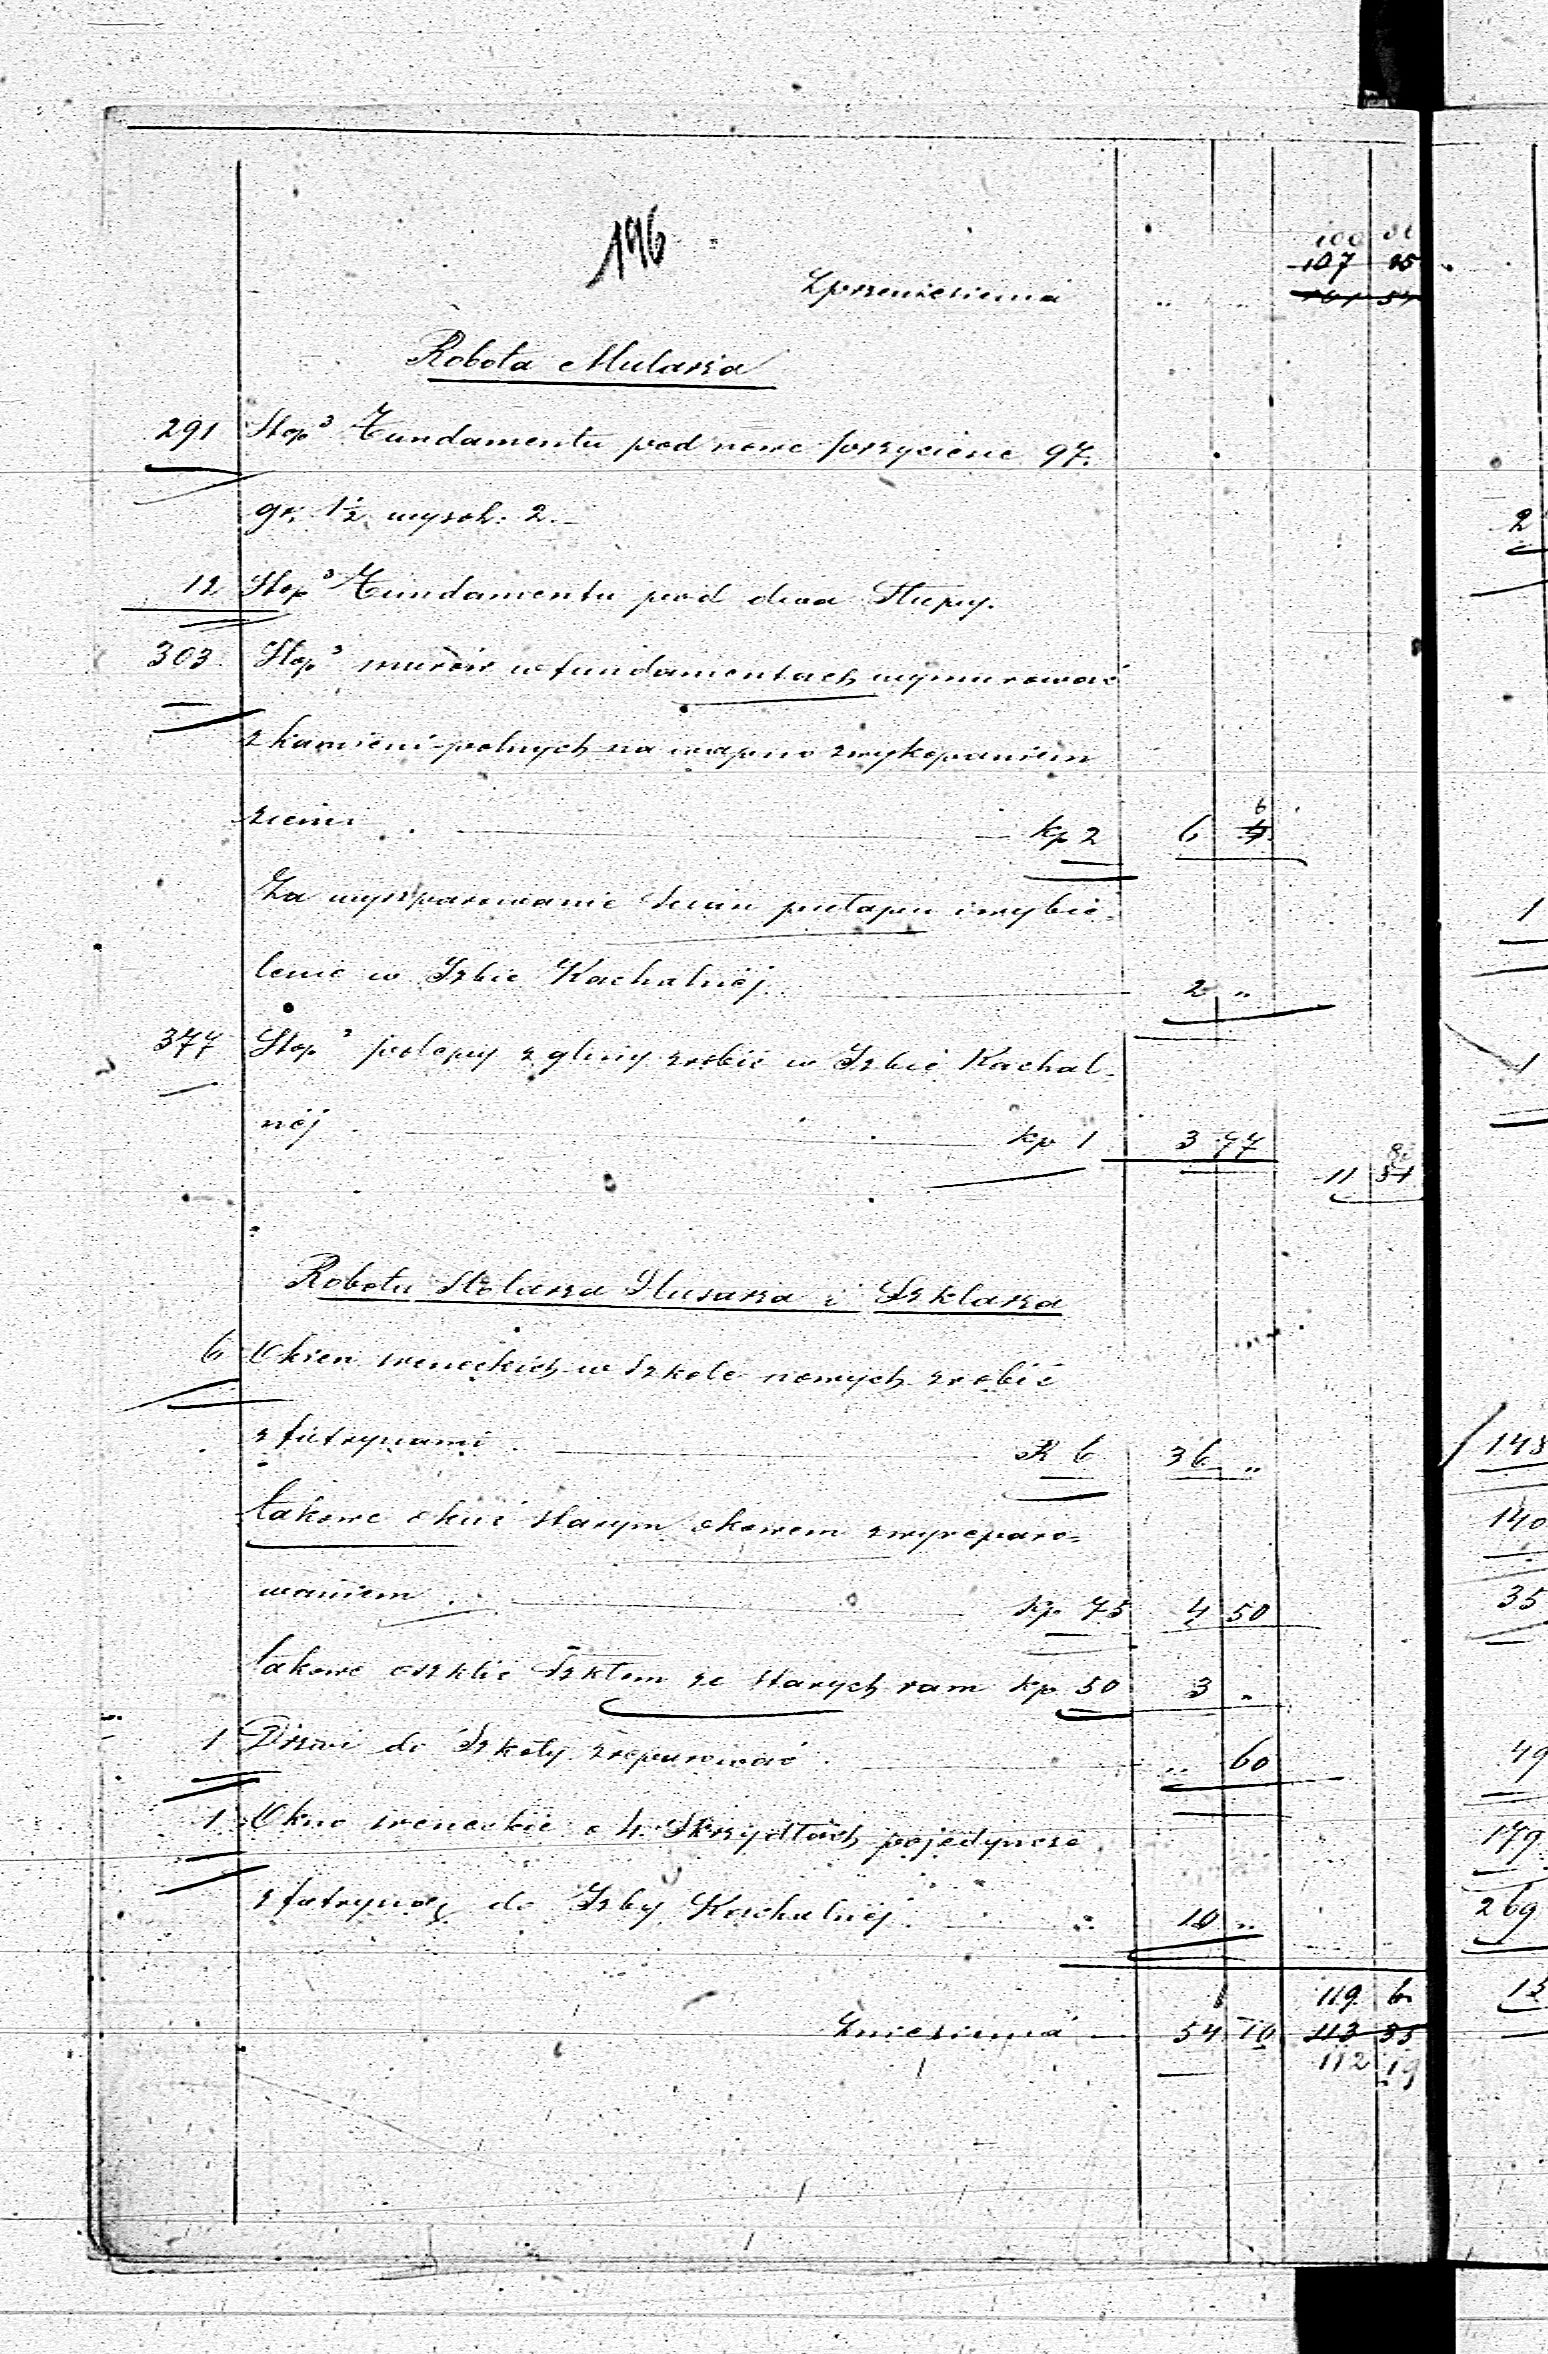 196
100
107 25
Zprzeniesienia " "
Robota Mularza
291 Stop³ Fundamentu pod nowe przyciesie 97.
gr. 1½ wysok: 2.
12 Stop³ Fundamentu pod dwa Słupy.
303 Stop³ murów w fundamentach wymurować
z kamieni polnych na wapno zwykopaniem
ziemi kp 2 6 6
Za wyszparowanie Scian pułapu i wybie-
lenie w Izbie Kachalnéj 2 "
377 Stop² polepy z gliny zrobić w Izbie Kachal-
néj kp 1 3 77
11 51
Robota Stolarza Slusarza i Szklarza
6 Okien weneckich w Szkole nowych zrobić
z futrynami R 6 36 "
takowe okuć starym okowem zwyreparo-
waniem kp 75 4 50
takowe oszklić Szkłem ze starych ram kp 50 3 "
1 Drzwi do Szkoły zreparować " 60
1 Okno weneckie o 4 Skrzydłach pojedyncze
z futryną do Izby Kachalnéj 10 "
119 6
Zniesienia 54 10 113 35
112 19
2
1
1
148
140
35
49
179
269